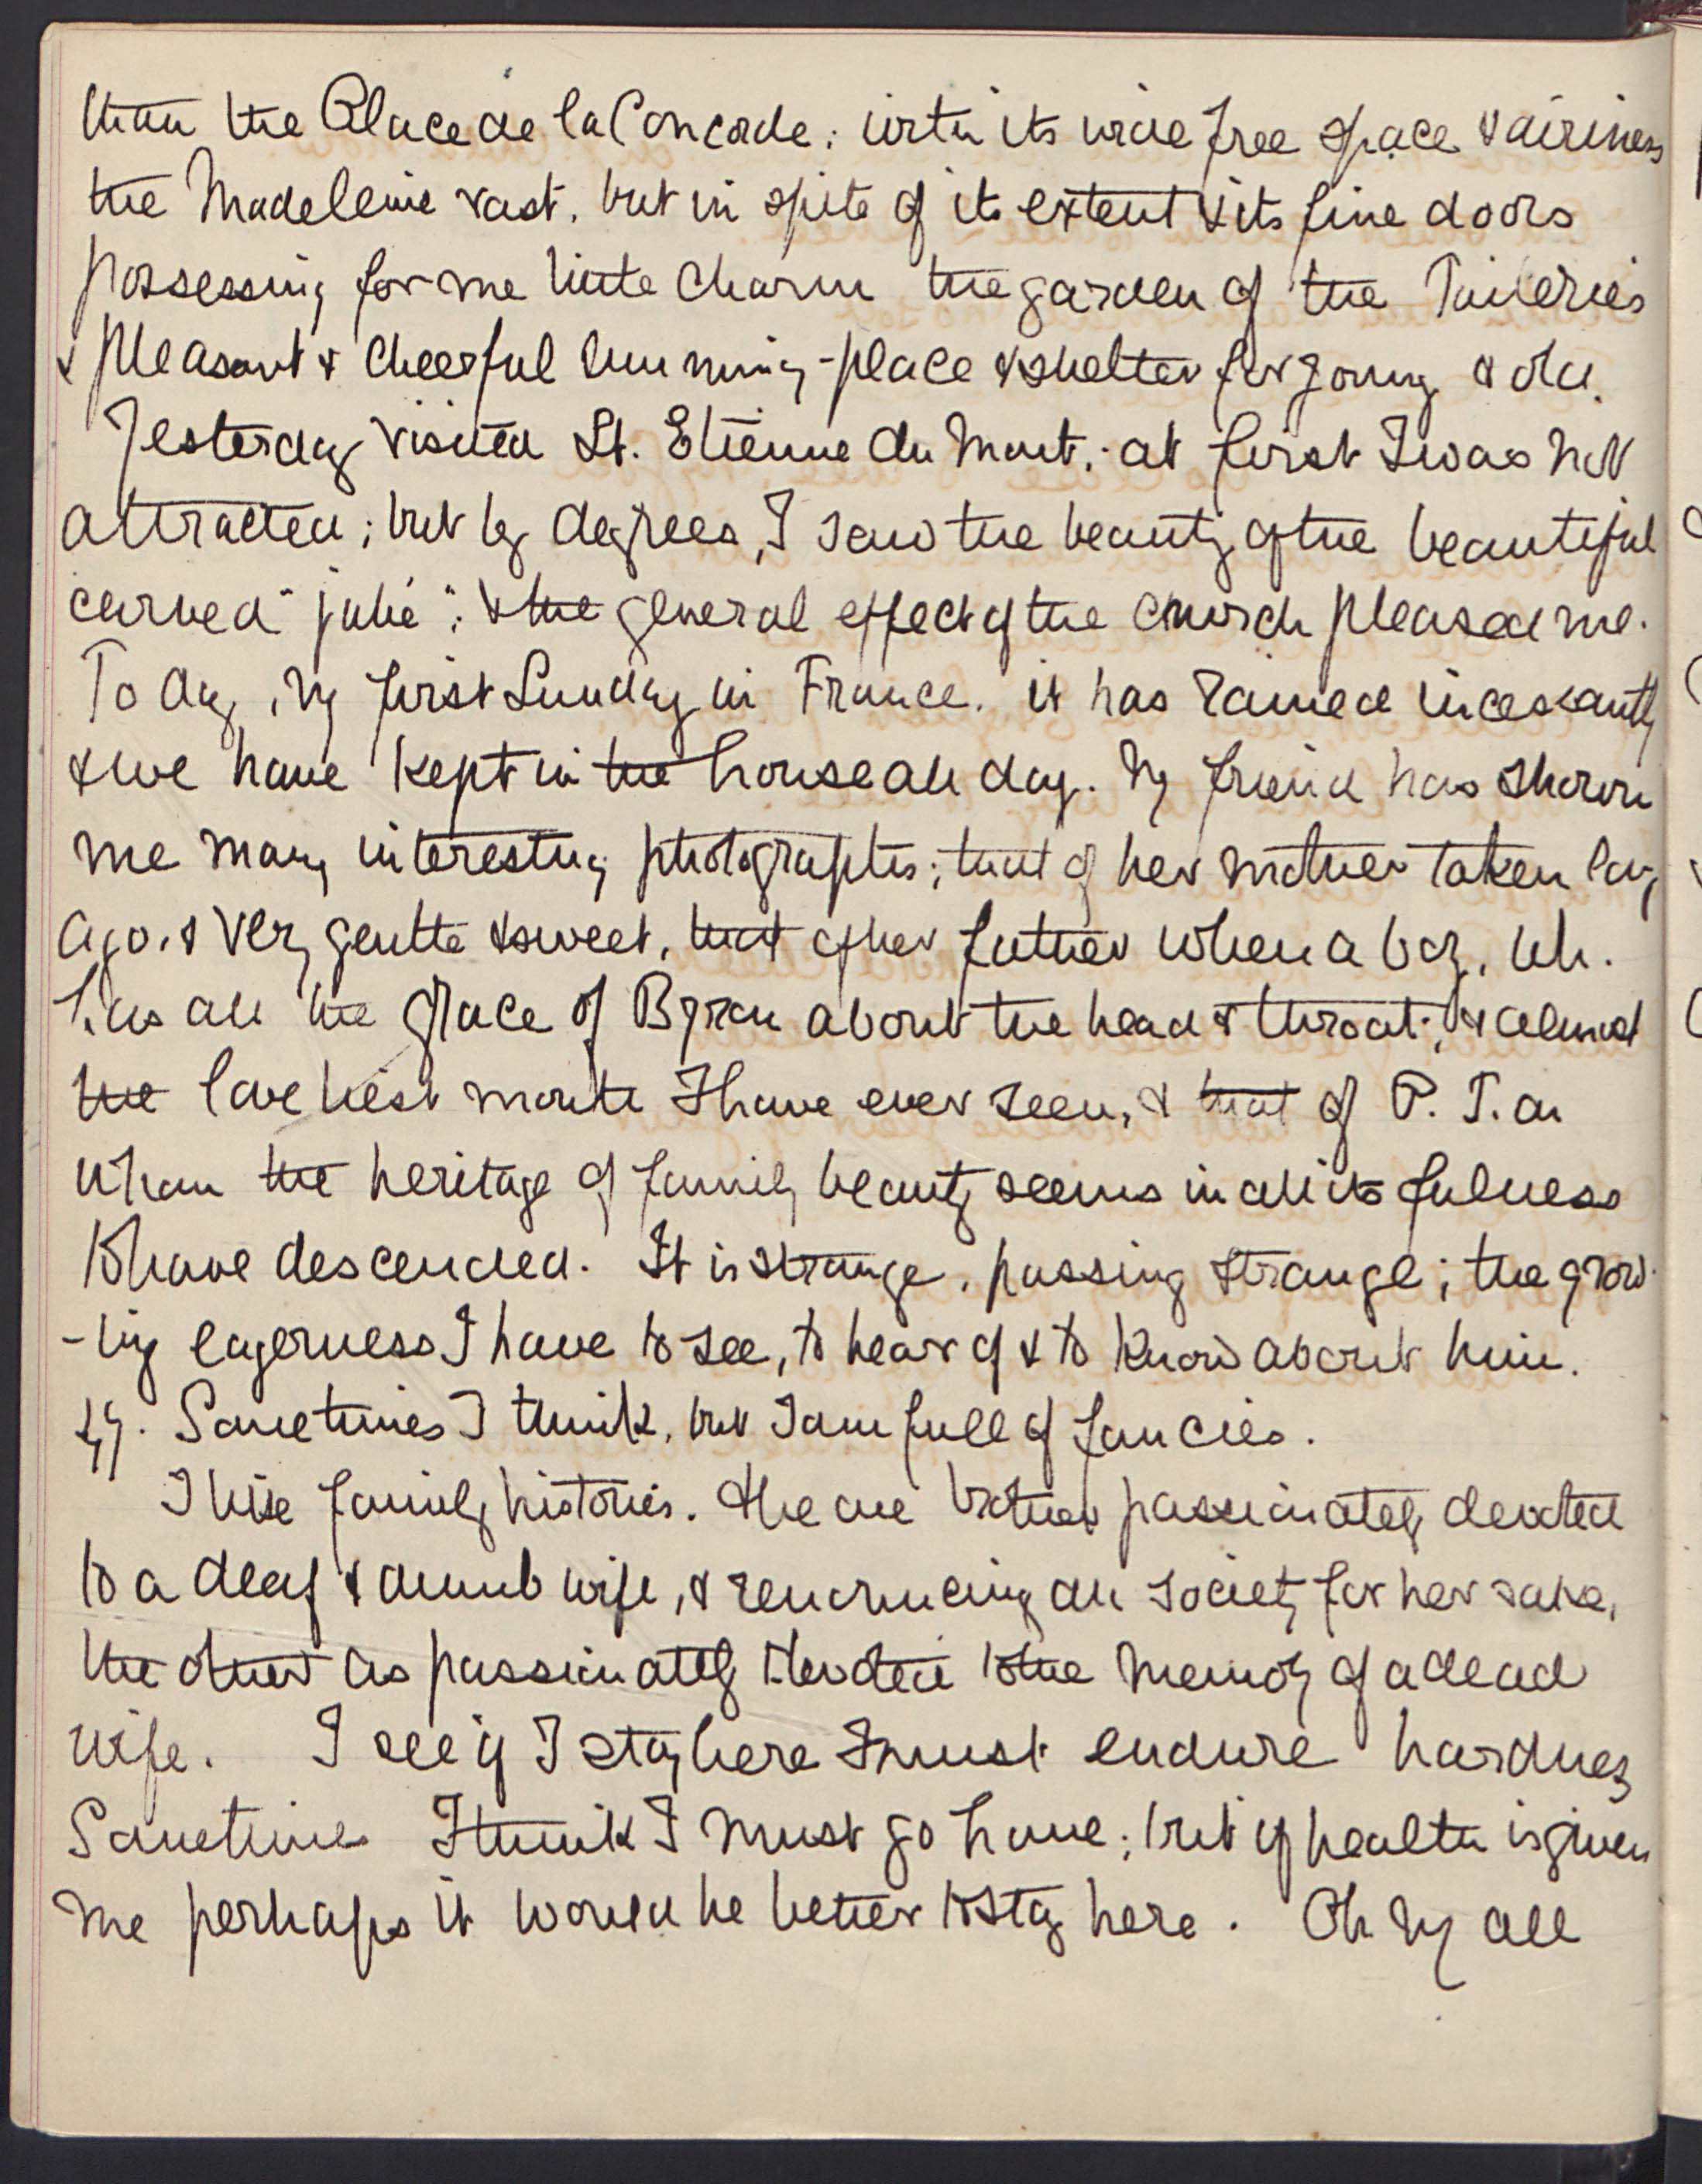 than the Place de la Concorde; with its wide free space & airiness
the Madeleine vast, but in spite of its extent & its fine doors
possessing for me little charm the garden of the Tuileries
& pleasant & cheerful -place & shelter for young & old.
Yesterday visited St. Etienne du Mont; at first I was not
attracted; but by degrees, I saw the beauty of the beautiful
carved "jubé"; & the general effect of the church pleased me.
To day, my first Sunday in France. it has rained incessantly
& we have kept in the house all day. My friend has shown
me many interesting photographs; that of her mother taken long
ago, & very gentle & sweet, that of her father when a boy, wh.
has all the grace of Byron about the head & throat; & almost
the loveliest mouth I have ever seen, & that of P. T. on
whom the heritage of family beauty seems in all its fulness
to have descended. It is strange, passing strange; the grow-
-ing eagerness I have to see, to hear of & to know about him.
Sometimes I think, but I am full of fancies.
I like family histories. The one brother passionately devoted
to a deaf & dumb wife, & renouncing all society for her sake,
the other as passionately devoted to the memory of a dead
wife. I see if I stay here I must endure hardness
Sometimes I think I must go home; but if health is given
me perhaps it would be better to stay here. Oh my all